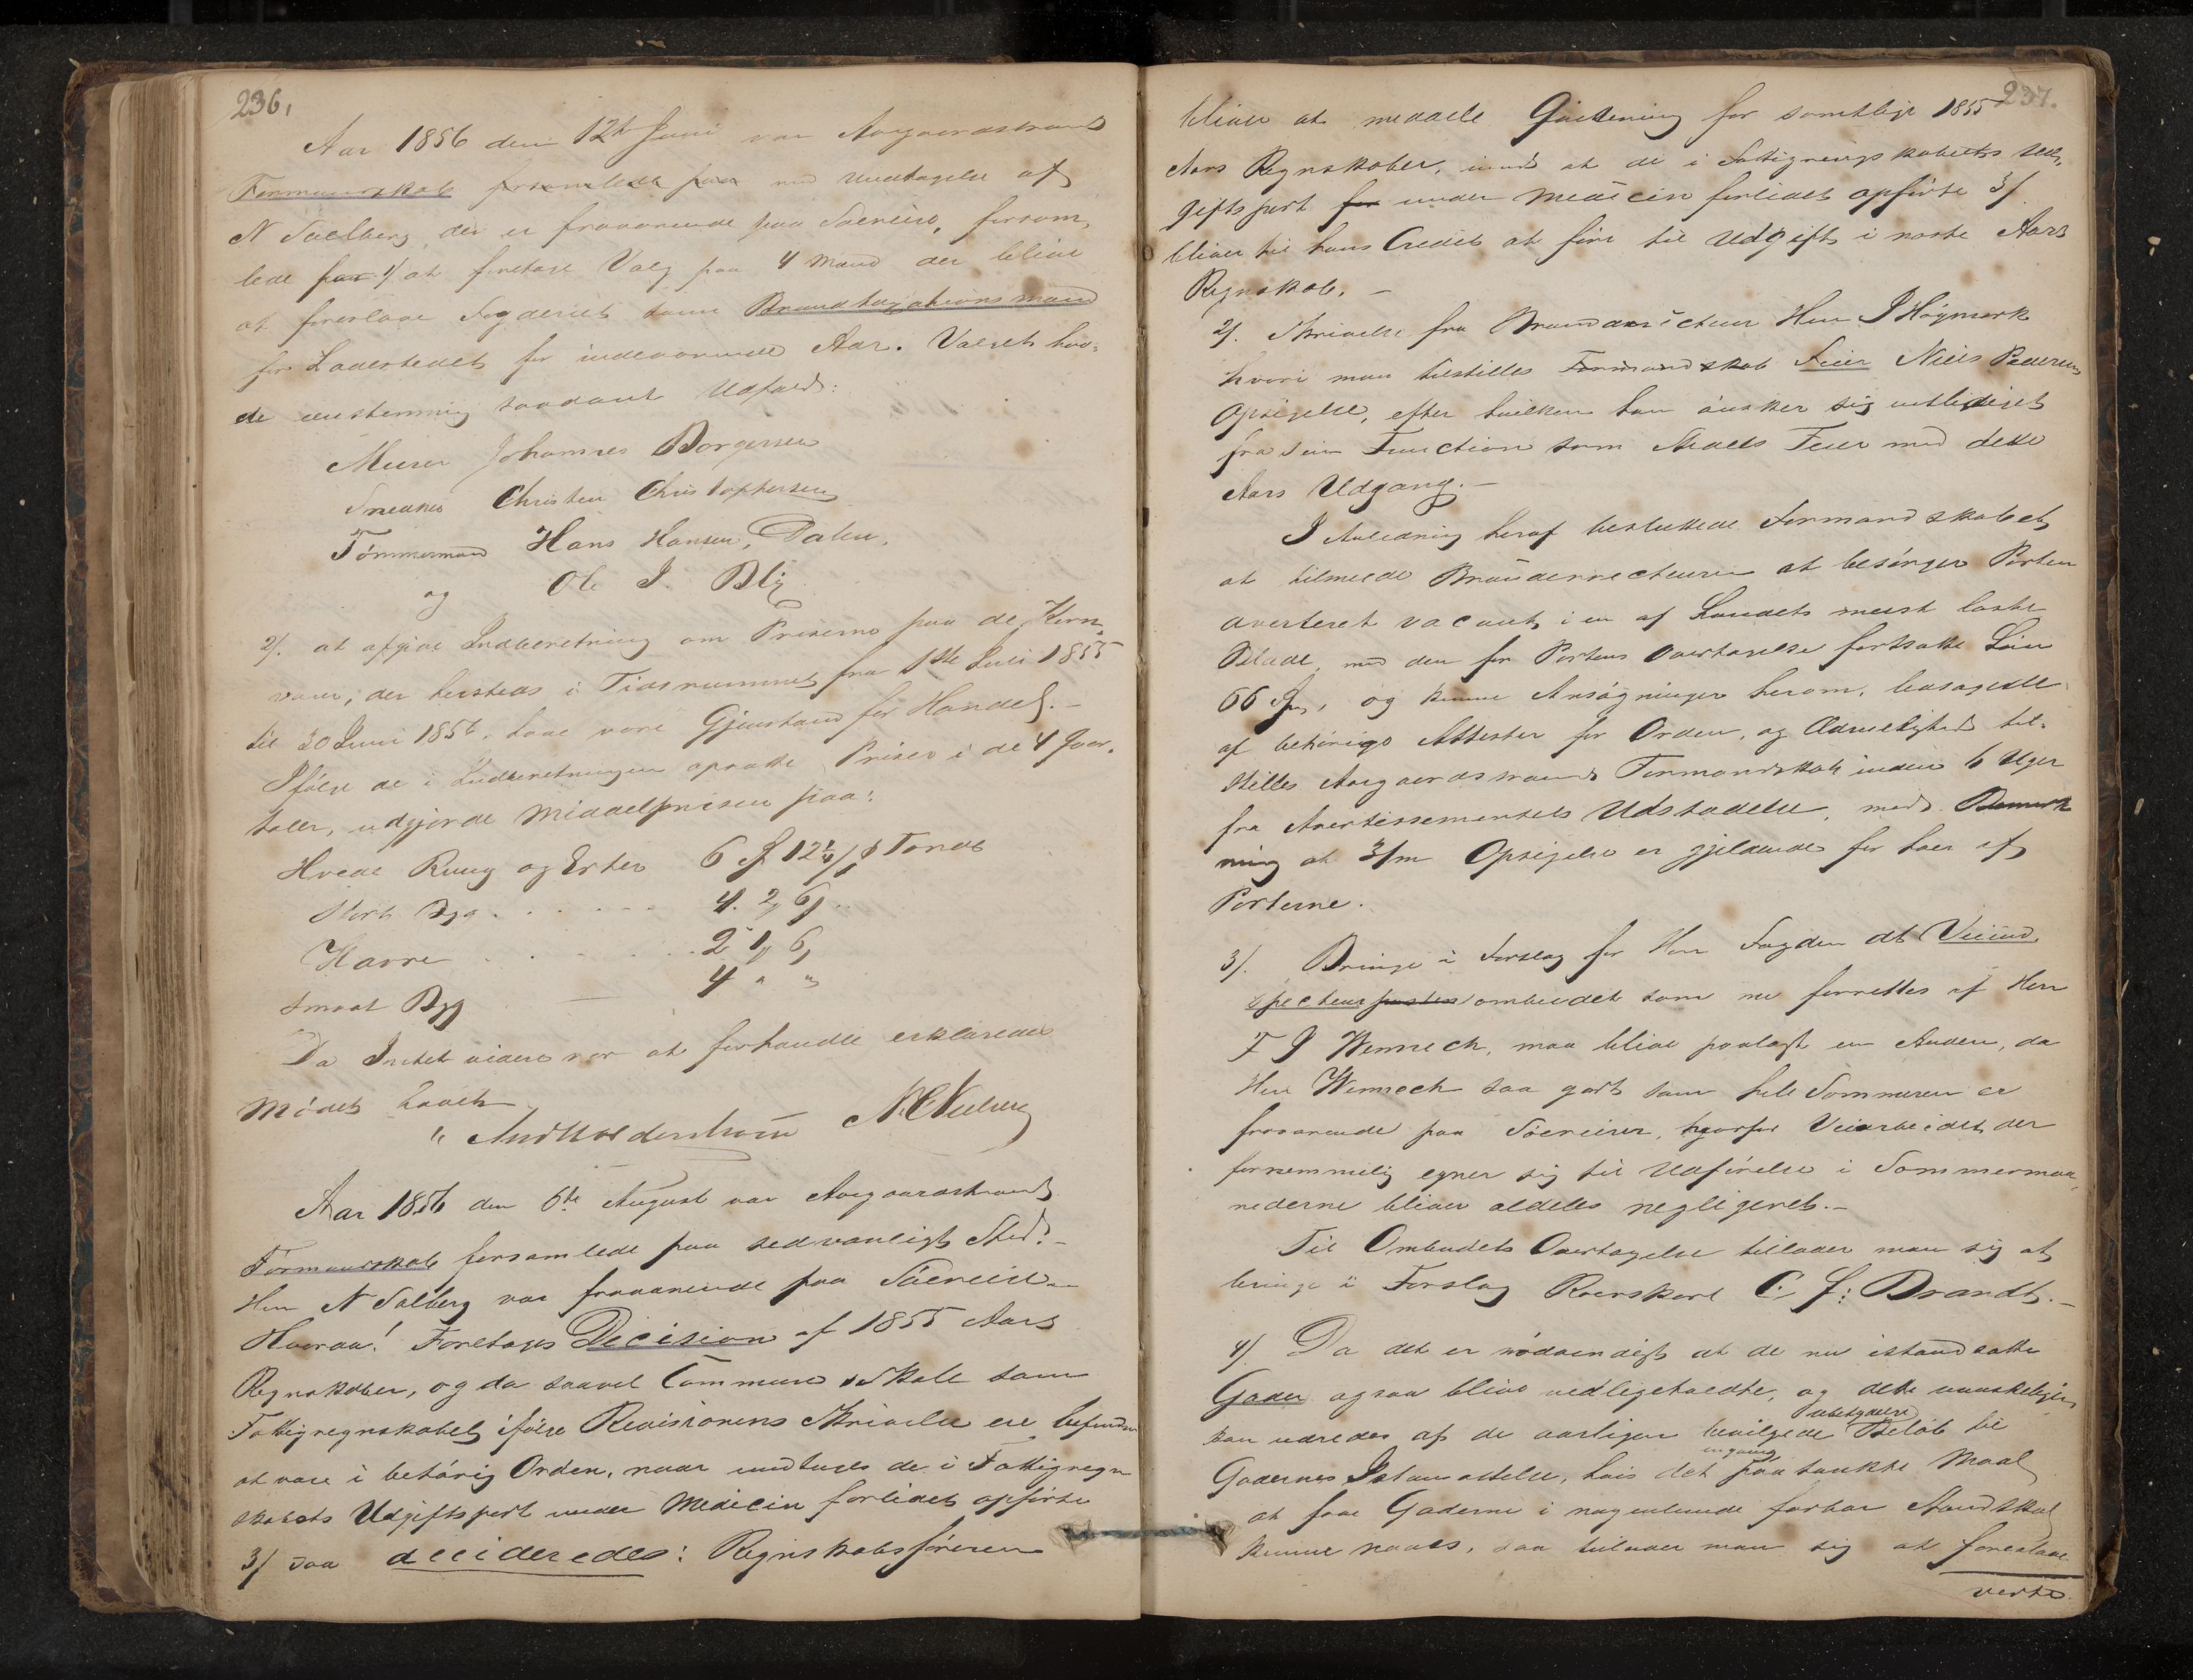 236.
Aar 1856 den 12te Juni var Aasgaardstrands
Formandskab forsamlede paa med Undtagelse af
N Solberg, der er fraværende paa Søereise, forsam-
lede for 1/ at foretage Valg paa 4 Mand der blive
at foreslaae Fogderiet som Brandtaxationsmænd
for Ladestedet for indeværende Aar. Valget hav-
de eenstemmig saadant Udfald:
Murer Johannes Borgersen
Snedker Christen Christophersen
Tømmermand Hans Hansen, Dalen,
og Ole I. Bly
2/. at afgive Indberetning om Priserne paa de Korn-
varer, der hersteds i Tidsrummet fra 1ste Juli 1855
til 30 Juni 1856, have været Gjenstand for Handel. –
Ifølge de i Indberetningen opsatte Priser i de 4 Qvar-
taler, udgjorde Middelprisen paa:
Hvede Rug og Erter 6 12½ Tønde
Stort Byg . . . . . 4. 2, 6,
Havre . . . . . 2 1, 6,
Smaat Byg – 4 " "
Da Intet videre var at forhandle erklæredes
Mødet hævet
N C Nielsen
Aar 1856 den 6te August var Aasgaardstrands
Formandskab forsamlede paa sedvanligt Sted. –
Herr N Solberg var fraværende paa Søereise –
Hvoraa! Foretages Decision af 1855 Aars
Regnskaber, og da saavel Commune Skole som
Fattigregnskabet ifølge Revisionens Skrivelse ere befundne
at være i behørig Orden, naar undtages de i Fattigregn-
skabets Udgiftspost under Medicin forlidet opførte
3/ saa decideredes: Regnskabsføreren
237.
bliver at meddele Qvittering for samtlige 1855
Aars Regnskaber, imod at de i Fattigregnskabets Ud-
giftspost for under Medicin forlidet opførte 3/
bliver til hans Credit at føre til Udgift i næste Aars
Regnskab. –
2/. Skrivelse fra Branddirecteur Herr P Høymork
hvori man tilstilles Formandskab Feier Niels Pedersens
Opsigelse, efter hvilken han ønsker sig entlediget
fra sin Function som Stedets Feier med dette
Aars Udgang. –
I Anledning heraf besluttede Formandskabet
at tilmelde Branddirecteuren at besørge Posten
averteret vacant, i en af Landets meest læste
Blade, med den for Postens Overtagelse fastsatte Løn
66 Spd, og kunne Ansøgninger herom, ledsagede
af behørige Attester for Orden, og Ædruelighed til-
stilles Aasgaardstrands Formandskab inden 6 Uger
fra Avertissementets Udstædelse, med Bemærk
ning at 3/m Opsigelse er gjeldende for hver af
Parterne.
3/. Bringe i Forslag for Herr Fogden at Veiind-
specteurposten ombudet som nu forrettes af Herr
F I Wennech, maa blive paalagt en Anden, da
Herr Wennech saa godt som hele Sommeren er
fraværende paa Søereiser, hvorfor Veiarbeidet der
fornemmelig egner sig til Udførelse i Sommermaa-
nederne bliver aldeles negligeret. –
Til Ombudets Overtagelse tillader man sig at
bringe i Forslag C: f: Brandt. –
4/. Da det er nødvendigt at de nu istandsatte
Gader ogsaa blive vedligeholdte, og dette vanskeligen
kan udredes af de aarligen bevilgede ubetydelige Beløb til
Gadernes Istandsettelse, hvis det engang paatænkte Maal
at faae Gaderne i nogenlunde farbar Stand skal
kunne naaes, saa tillader man sig at foreslaae
verte